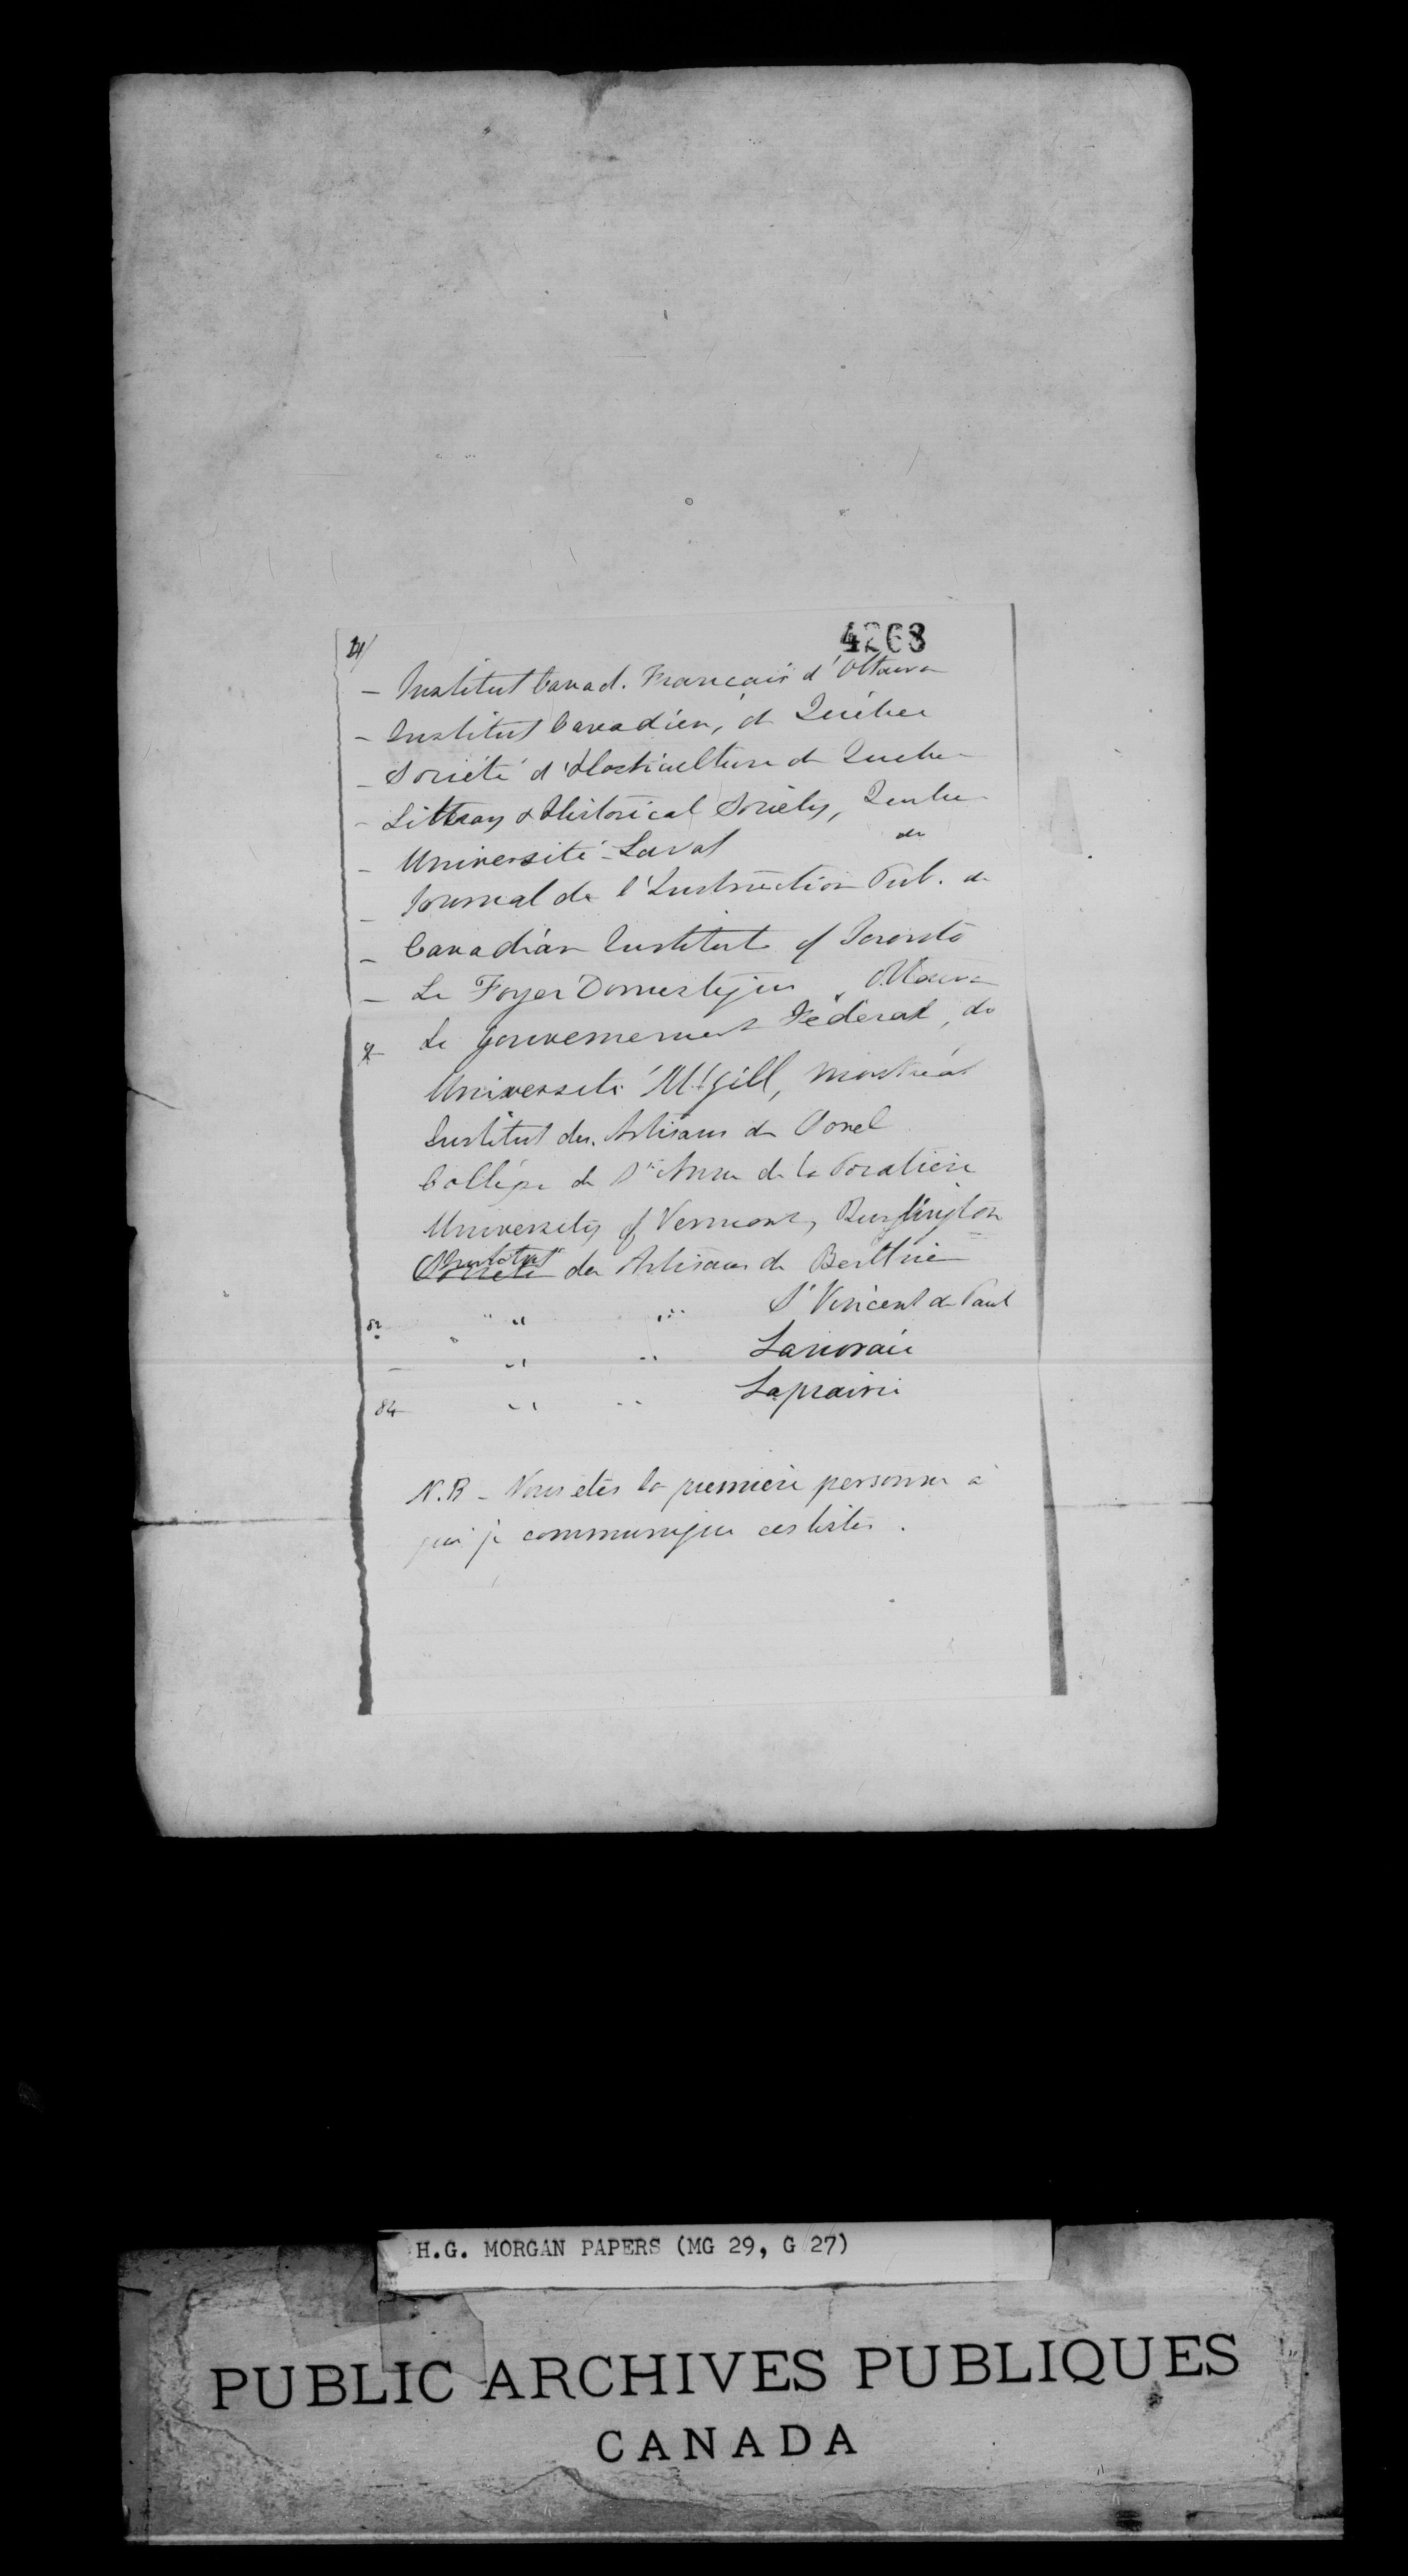 4268
- Institut Canad. Français d'Ottawa
- Institut Canadien, de Québec
- Société d'Horticulture de Québec
- Litteray & Historical Society, Quebec
- Université-Laval do
- Journal de l'Instruction Pub. do
- Canadian Institute of Toronto
- Le Foyer Domestique, Ottawa
Le Gouvernement Fédéral, do
Université McGill, Montréal
Institut des Artisans de Sorel
Collége de Ste Anne de la Pocatière
University of Vermont, Burlington
Société Institut des Artisans de Berthier
82 " " " St Vincent de Paul
- " " Lanoraie
84 " " Laprairie
N.B - Vous êtes la première personne à
qui je communique ces listes.
H.G. MORGAN PAPERS (MG 29, G 27)
PUBLIC ARCHIVES PUBLIQUES
CANADA